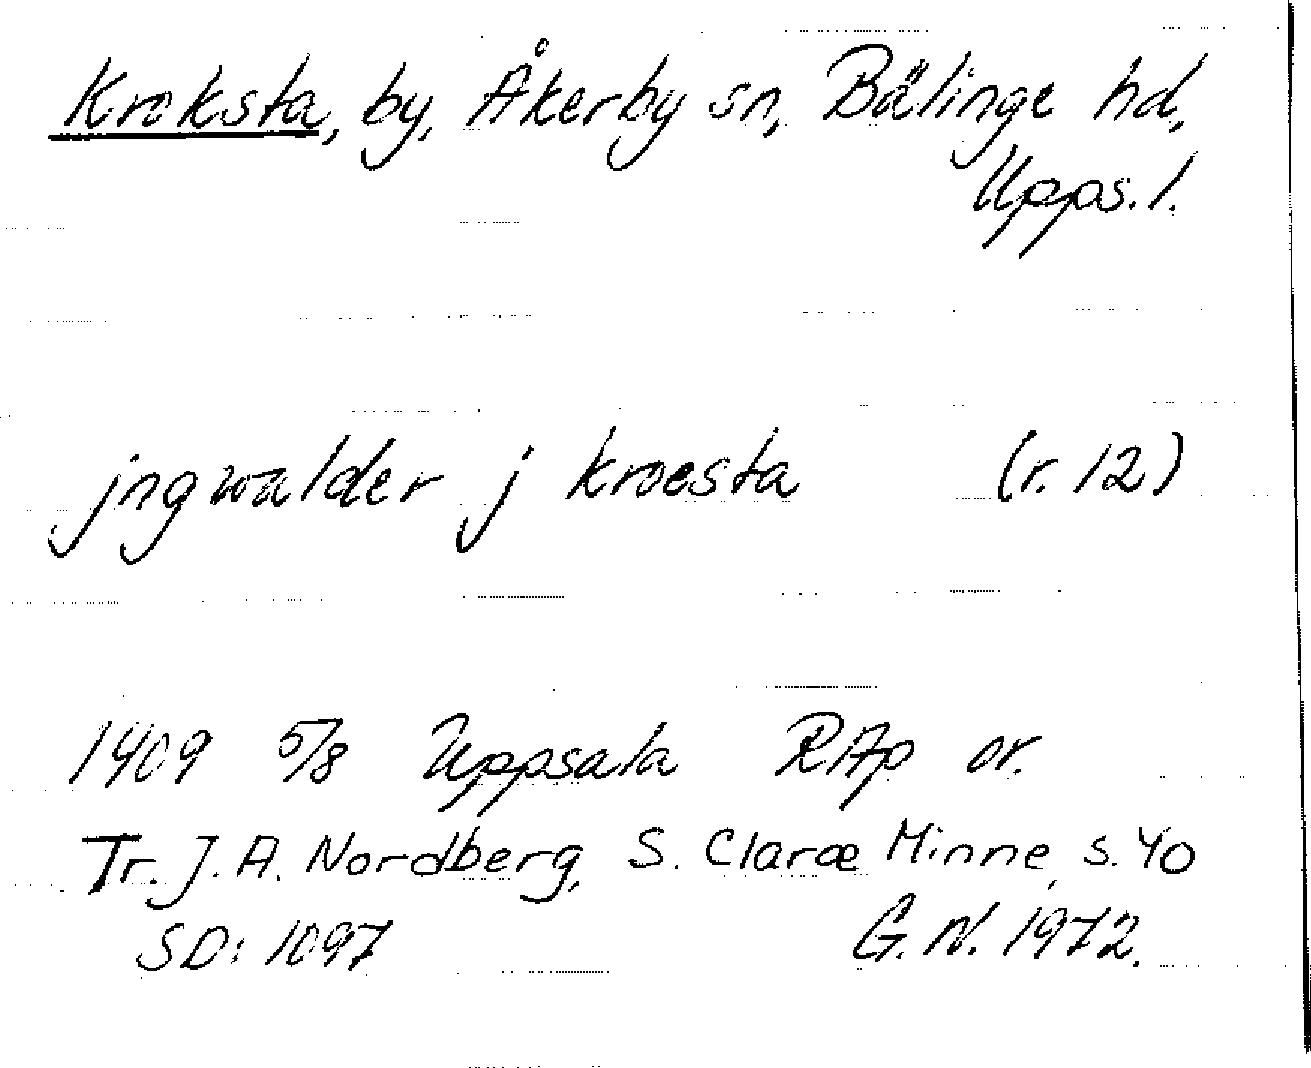 Kroksta, by, Åkerby sn, Bälinge hd,
Upps. l.
jngwalder j kroesta (r. 12)
1409 5/8 Uppsala RAp or.
Tr. J. A. Nordberg, S. Claræ Minne, s. 40
SD: 1097 G. N. 1972.